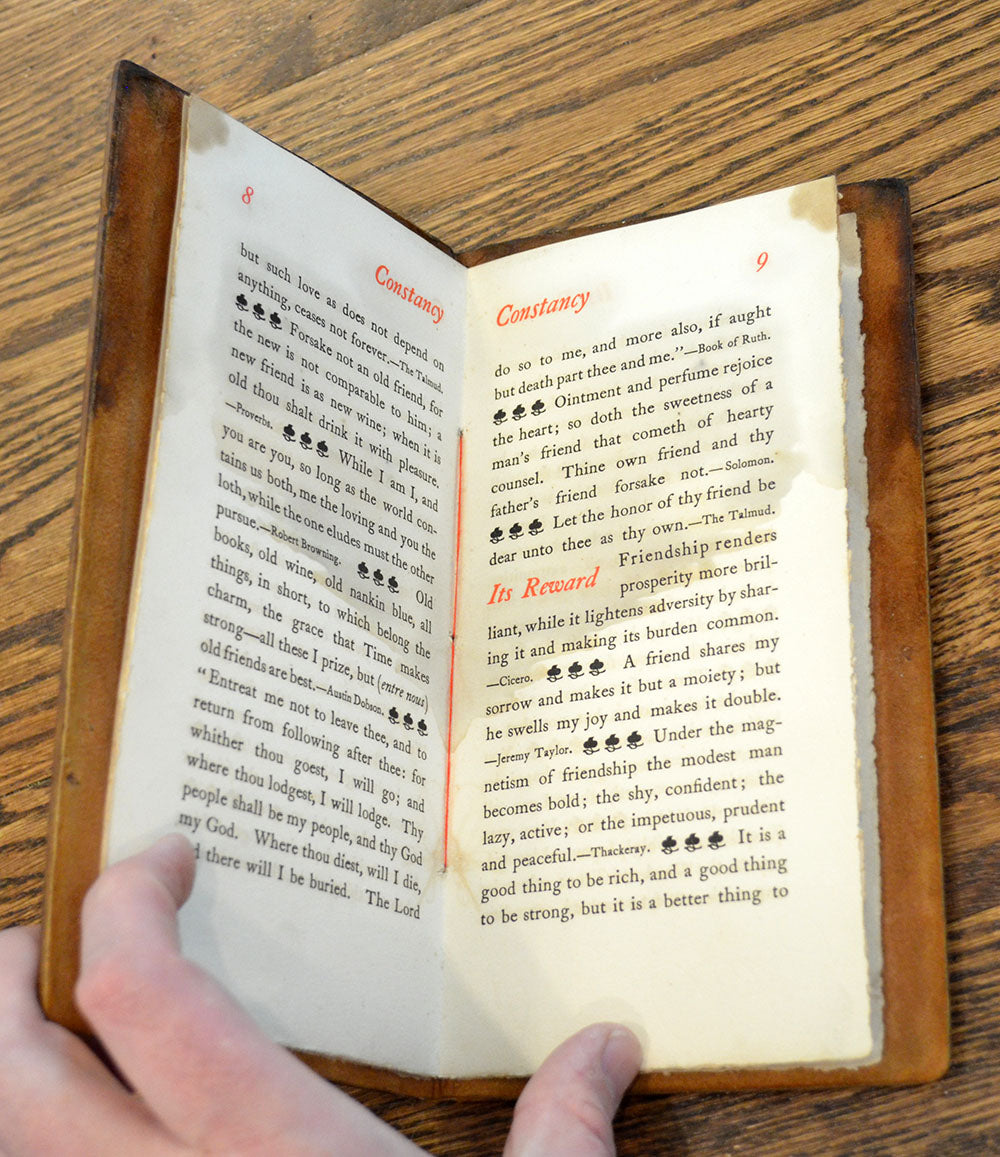 8
Constancy
but such love as does not depend on
anything, ceases not forever.—The Talmud.
Forsake not an old friend, for
the new is not comparable to him; a
new friend is as new wine; when it is
old thou shalt drink it with pleasure.
—Proverbs. While I am I, and
you are you, so long as the world con-
tains us both, me the loving and you the
loth, while the one eludes must the other
pursue.—Robert Browning. Old
books, old wine, old nankin blue, all
things, in short, to which belong the
charm, the grace that Time makes
strong—all these I prize, but (entre nous)
old friends are best.—Austin Dobson.
“Entreat me not to leave thee, and to
return from following after thee: for
whither thou goest, I will go; and
where thou lodgest, I will lodge. Thy
people shall be my people, and thy God
my God. Where thou diest, will I die,
there will I be buried. The Lord
9
Constancy
do so to me, and more also, if aught
but death part thee and me.”—Book of Ruth.
Ointment and perfume rejoice
the heart; so doth the sweetness of a
man's friend that cometh of hearty
counsel. Thine own friend and thy
father's friend forsake not.—Solomon.
Let the honor of thy friend be
dear unto thee as thy own.—The Talmud.
Its Reward Friendship renders
prosperity more bril-
liant, while it lightens adversity by shar-
ing it and making its burden common.
—Cicero. A friend shares my
sorrow and makes it but a moiety; but
he swells my joy and makes it double.
—Jeremy Taylor. Under the mag-
netism of friendship the modest man
becomes bold; the shy, confident; the
lazy, active; or the impetuous, prudent
and peaceful.—Thackeray. It is a
good thing to be rich, and a good thing
to be strong, but it is a better thing to